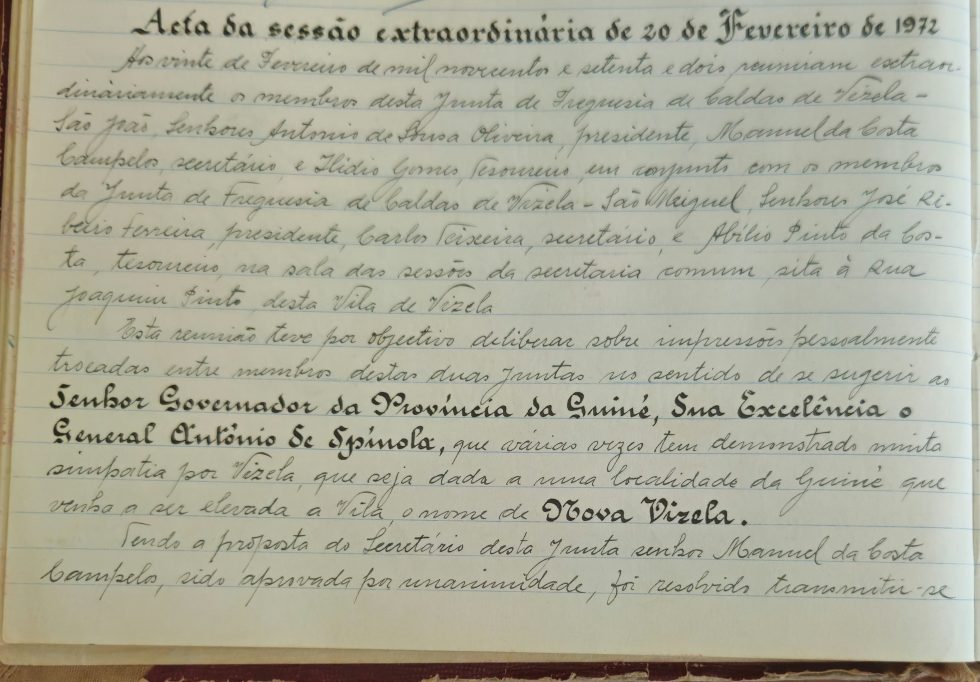 Acta da sessão extraordinária de 20 de Fevereiro de 1972
Aos vinte de Fevereiro de mil novecentos e setenta e dois, reuniram extraor-
dinàriamente os membros desta Junta de Freguesia de Caldas de Vizela -
São João, Senhores Antonio de Sousa Oliveira, presidente, Manuel da Costa
Campelos, secretário, e Ilídio Gomes, Tesoureiro, em conjunto com os membros
da Junta de Freguesia de Caldas de Vizela - São Meiguel, Senhores José Ri-
beiro Ferreira, presidente, Carlos Teixeira, secretário, e Abílio Pinto da Cos-
ta, tesoureiro, na sala das sessões da secretaria comum, sita à Rua
Joaquim Pinto, desta Vila de Vizela
Esta reunião teve por objectivo deliberar sobre impressões pessoalmente
trocadas entre membros destas duas Juntas no sentido de se sugerir ao
Senhor Governador da Província da Guiné, Sua Excelência o
General António de Spínola, que várias vezes tem demonstrado muita
simpatia por Vizela, que seja dada a uma localidade da Guiné que
venha a ser elevada a Vila, o nome de Nova Vizela.
Tendo a proposta do Secretário desta Junta senhor Manuel da Costa
Campelos, sido aprovada por unanimidade, foi resolvido transmitir-se